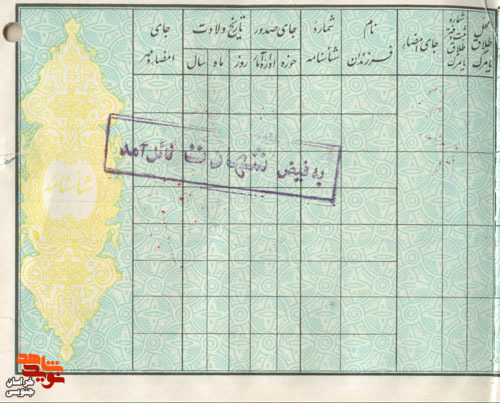 محل طلاق یا مرگ
شماره ثبت دفتر طلاق یا مرگ
جای امضاء
نام فرزندان
شمارهٔ شناسنامه
جای صدور
حوزه
اداره آمار
تاریخ ولادت
روز
ماه
سال
جای امضاء
به فیض شهادت نائل آمد
شناسنامه
نوید شاهد
خراسان جنوبی